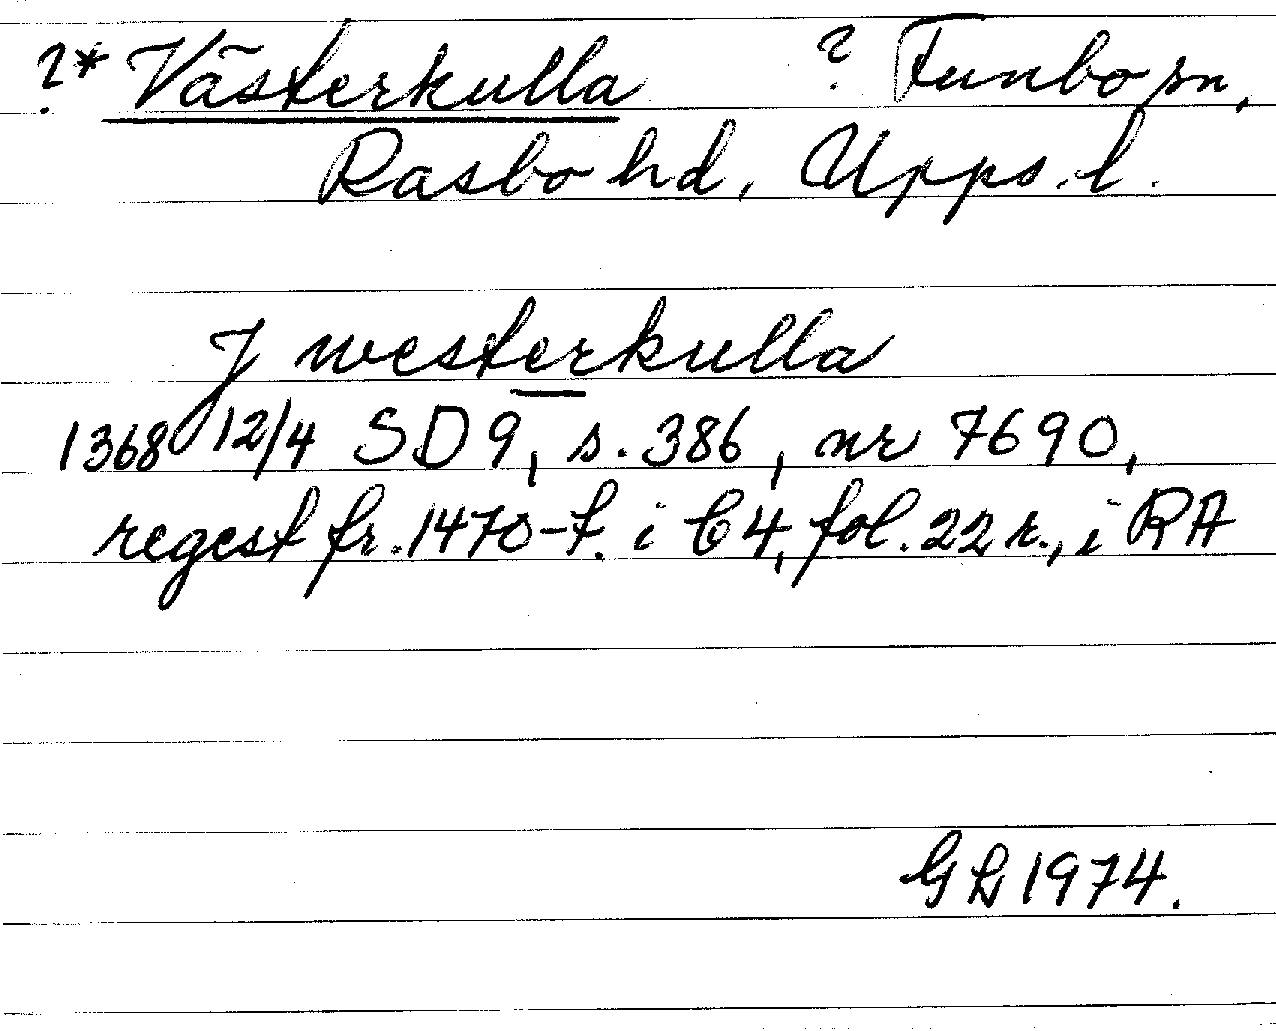 ?* Västerkulla ? Funbo sn,
Rasbo hd, Upps. l.
J westerkulla
1368 12/4 SD 9, s. 386, nr 7690,
regest fr. 1470-t. i C 4, fol. 22 r., i RA
GL 1974.